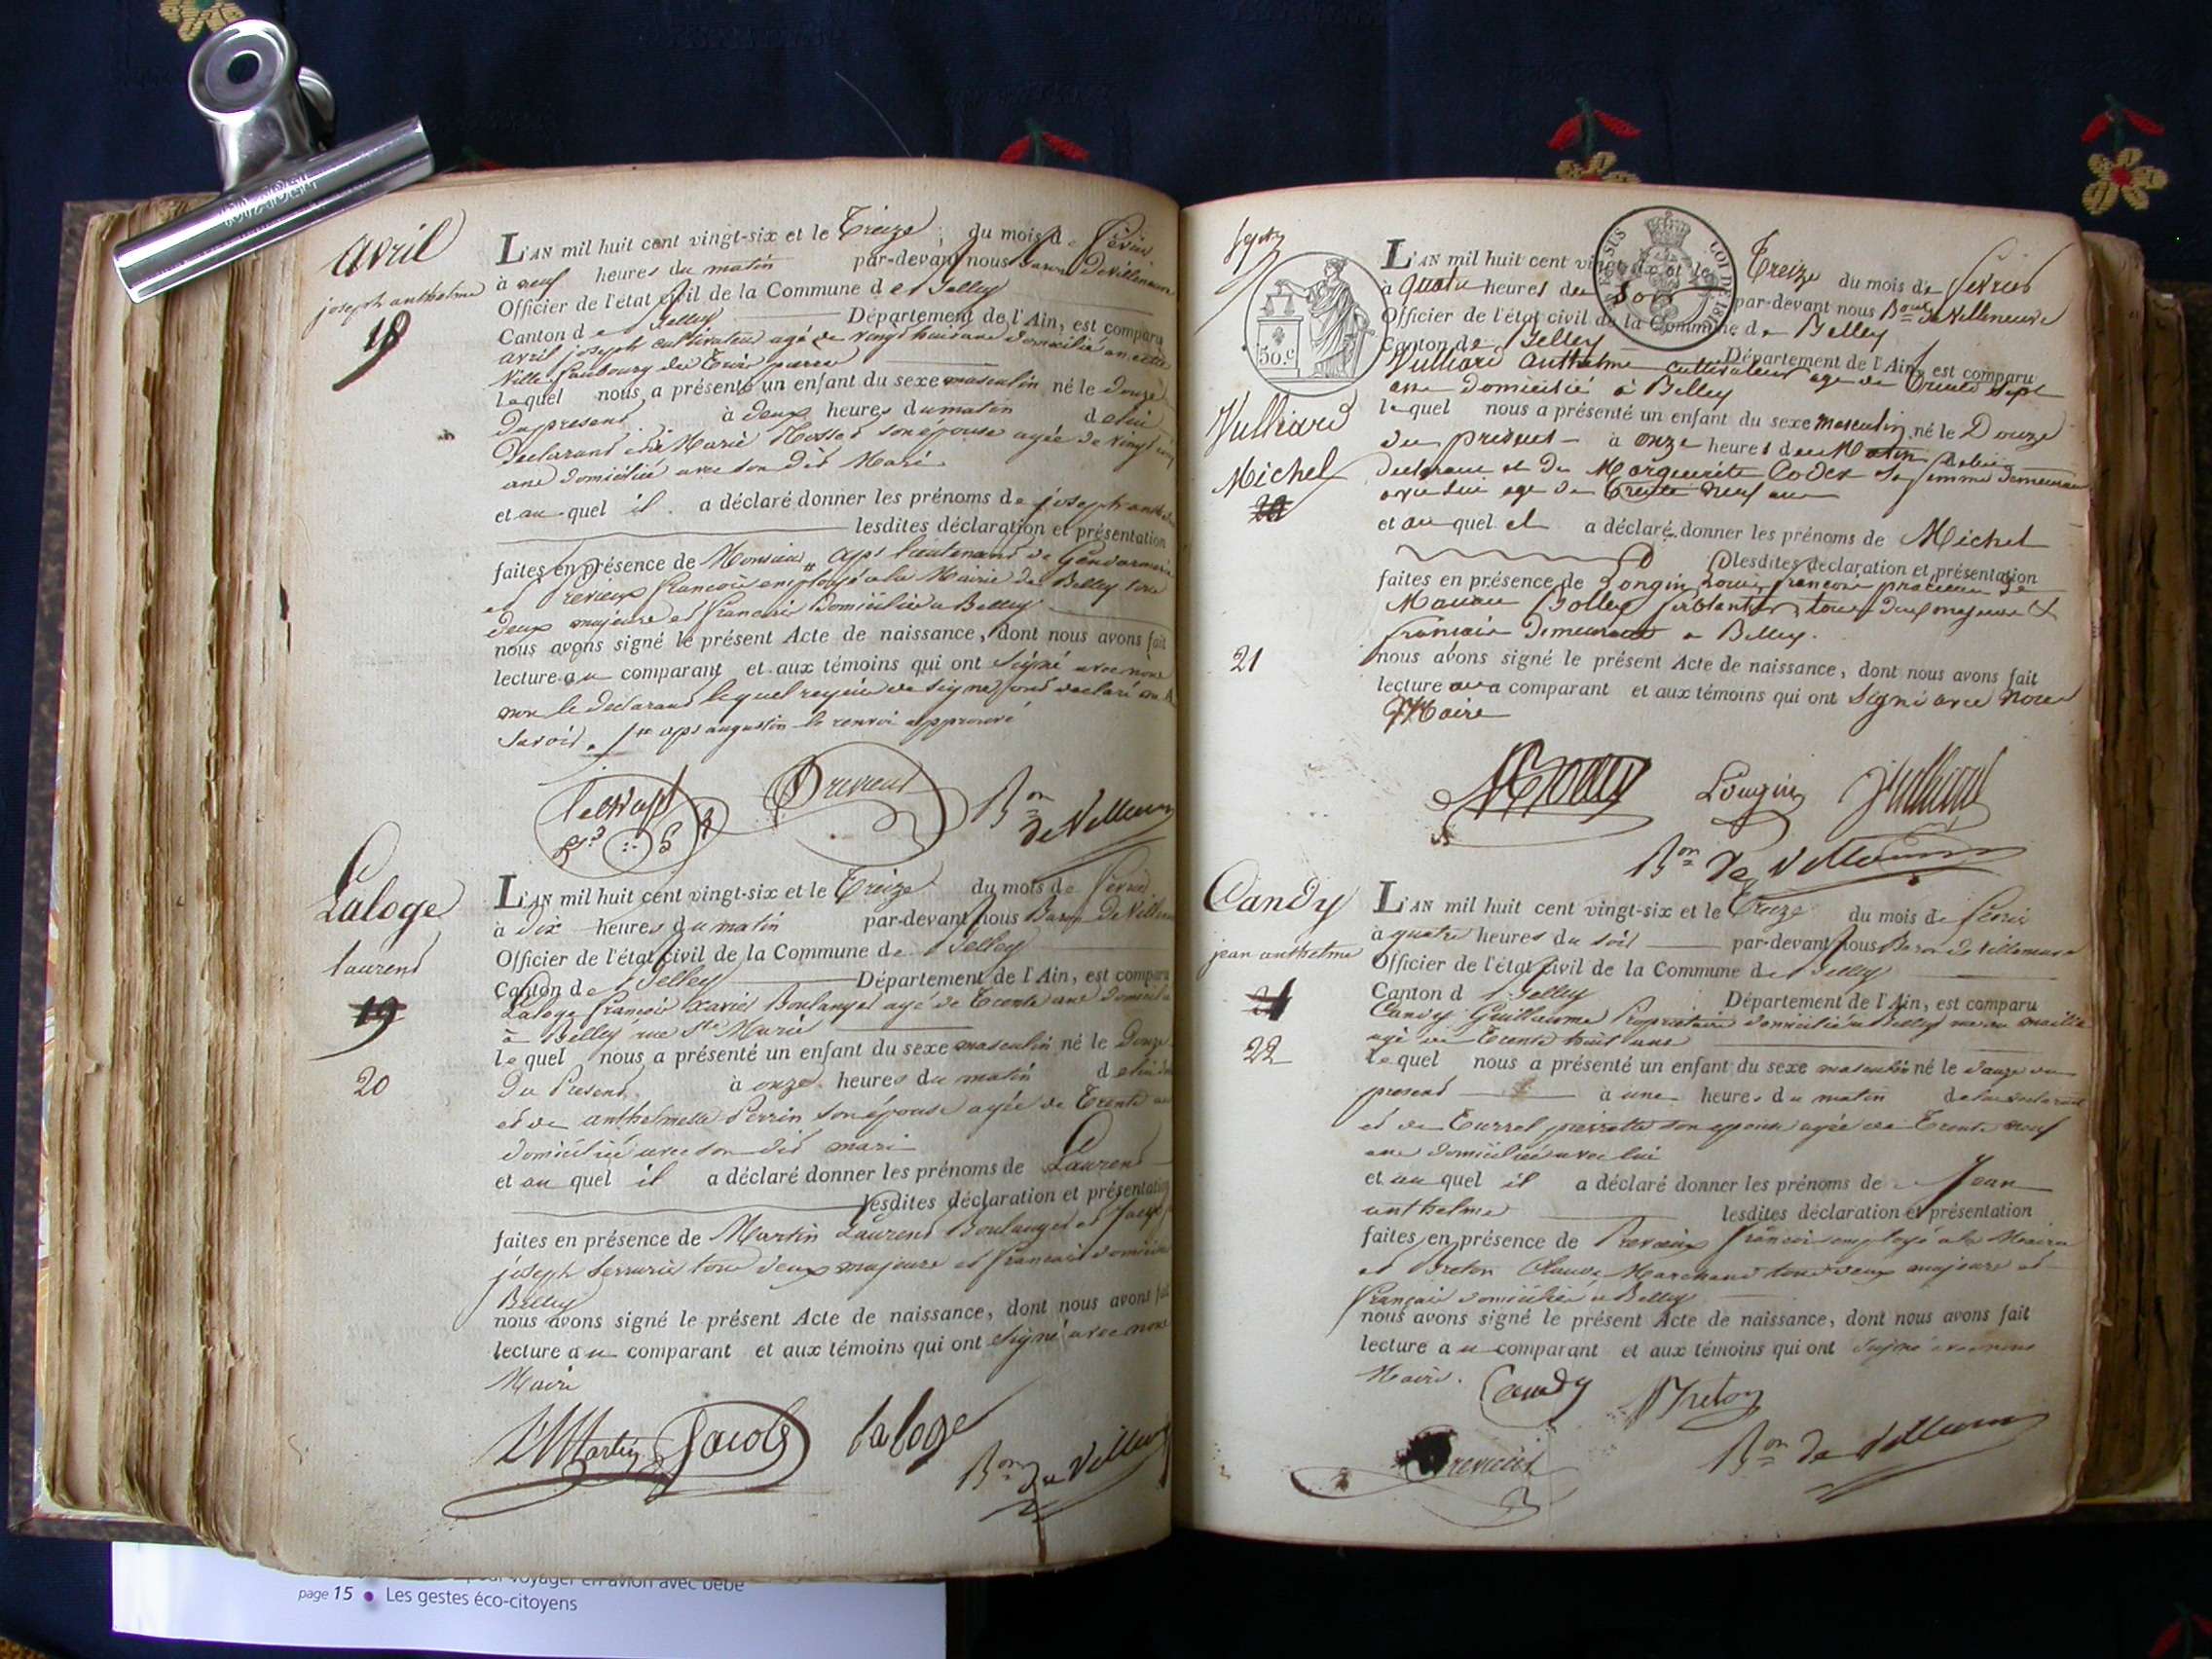 avril
joseph anthelme
18
L'AN mil huit cent vingt-six et le Treize du mois de Février
à neuf heures du matin par-devant nous Baron De Villeneuve
Officier de l'état civil de la Commune de Belley
Canton de Belley Département de l'Ain, est comparu
avril joseph cultivateur agé de vingt huit ans domicilié en cette
Ville faubourg du
lequel nous a présenté un enfant du sexe masculin né le Douze
du present à deux heures du matin de lui
Declarant et de Marie son épouse agée de vingt
ans domiciliée avec son dit Mari
et au quel il a déclaré donner les prénoms de joseph anthelme
lesdites déclaration et présentation
faites en présence de Monsieur aps lieutenant de Gendarmerie
et françois employé a la Mairie de Belley tous
deux majeurs et français domiciliés a Belley
nous avons signé le présent Acte de naissance, dont nous avons fait
lecture au comparant et aux témoins qui ont signé avec nous
non le declarant lequel requis de signer a declaré ne
savoir. aps augustin le renvoi approuvé
Bon de Villeneuve
Laloge
laurent
19
20
L'AN mil huit cent vingt-six et le Treize du mois de Février
à Dix heures du matin par-devant nous Baron De Villeneuve
Officier de l'état civil de la Commune de Belley
Canton de Belley Département de l'Ain, est comparu
Laloge françois Xavier Boulanger agé de Trente ans domicilié
à Belley rue Ste Marie
lequel nous a présenté un enfant du sexe masculin né le Douze
Du Present à onze heures du matin de lui
et de anthelmette Perrin son épouse agée de Trente ans
domiciliée avec son dit mari
et au quel il a déclaré donner les prénoms de Laurent
lesdites déclaration et présentation
faites en présence de Martin Laurent Boulanger et
joseph serrurier tous deux majeurs et français
Belley
nous avons signé le présent Acte de naissance, dont nous avons fait
lecture au comparant et aux témoins qui ont signé avec nous
Maire
Martin Jacob laloge
Bon de Villeneuve
Vulliard
Michel
20
21
50.c
L'AN mil huit cent vingt-six et le Treize du mois de Février
à quatre heures du Soir par-devant nous Bon de Villeneuve
Officier de l'état civil de la Commune de Belley
Canton de Belley Département de l'Ain, est comparu
Vulliard Anthelme cultivateur age de Trente sept
ans domicilié à Belley
lequel nous a présenté un enfant du sexe masculin né le Douze
du présent à onze heures du Matin de lui
declarant et de Marguerite Codex sa femme demeurant
avec lui age de Trente neuf ans
et au quel il a déclaré donner les prénoms de Michel
lesdites déclaration et présentation
faites en présence de Longin Louis françois
ferblantier tous deux majeurs &
français demeurant a Belley.
nous avons signé le présent Acte de naissance, dont nous avons fait
lecture au comparant et aux témoins qui ont signé avec nous
Maire
Longin Vulliard
Bon De Villeneuve
Candy
jean anthelme
21
22
L'AN mil huit cent vingt-six et le Treize du mois de Février
à quatre heures du soir par-devant nous Baron de Villeneuve
Officier de l'état civil de la Commune de Belley
Canton d Belley Département de l'Ain, est comparu
Candy Guillaume Propriétaire domicilié à Belley
agé de Trente huit ans
lequel nous a présenté un enfant du sexe masculin né le douze du
present à une heures du matin de lui declarant
et de Turrel pierrette son epouse agée de Trente neuf
ans domiciliée avec lui
et au quel il a déclaré donner les prénoms de Jean
anthelme lesdites déclaration et présentation
faites en présence de françois employé a la Mairie
et Breton Claude Marchand tous deux majeurs et
français domiciliés à Belley
nous avons signé le présent Acte de naissance, dont nous avons fait
lecture au comparant et aux témoins qui ont signé avec nous
Maire.
Candy Breton
Bon de Villeneuve
pour voyager en avion avec bébé
page 15 • Les gestes éco-citoyens